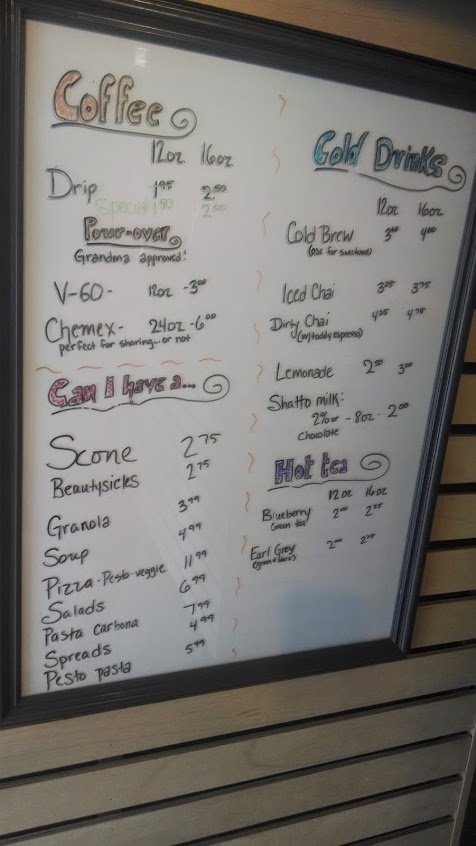 Coffee
12oz 16oz
Drip 1.95 2.50
Special 1.50 2.00
Pour-over
Grandma approved!
V-60- 12oz - 3.00
Chemex- 24oz - 6.00
perfect for sharing...or not
Can I have a...
Scone 2.75
Beautysicks 2.75
Granola 3.99
Soup 4.99
Pizza - Pesto-veggie 11.99
Salads 6.99
Pasta Carbona 7.99
Spreads 4.99
Pesto pasta 5.99
Cold Drinks
12oz 16oz
Cold Brew 3.00 4.00
Iced Chai 3.25 3.75
Dirty Chai 4.25 4.75
(w/toddy espresso)
Lemonade 2.50 3.00
Shatto milk:
2% or - 8oz - 2.00
Chocolate
Hot tea
12oz 16oz
Blueberry 2.00 2.25
Green tea
Earl Grey 2.00 2.25